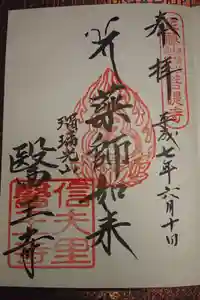 奉拝
平成七年六月十日
薬師如来
瑠璃光山
醫王寺
信夫里
醫王寺